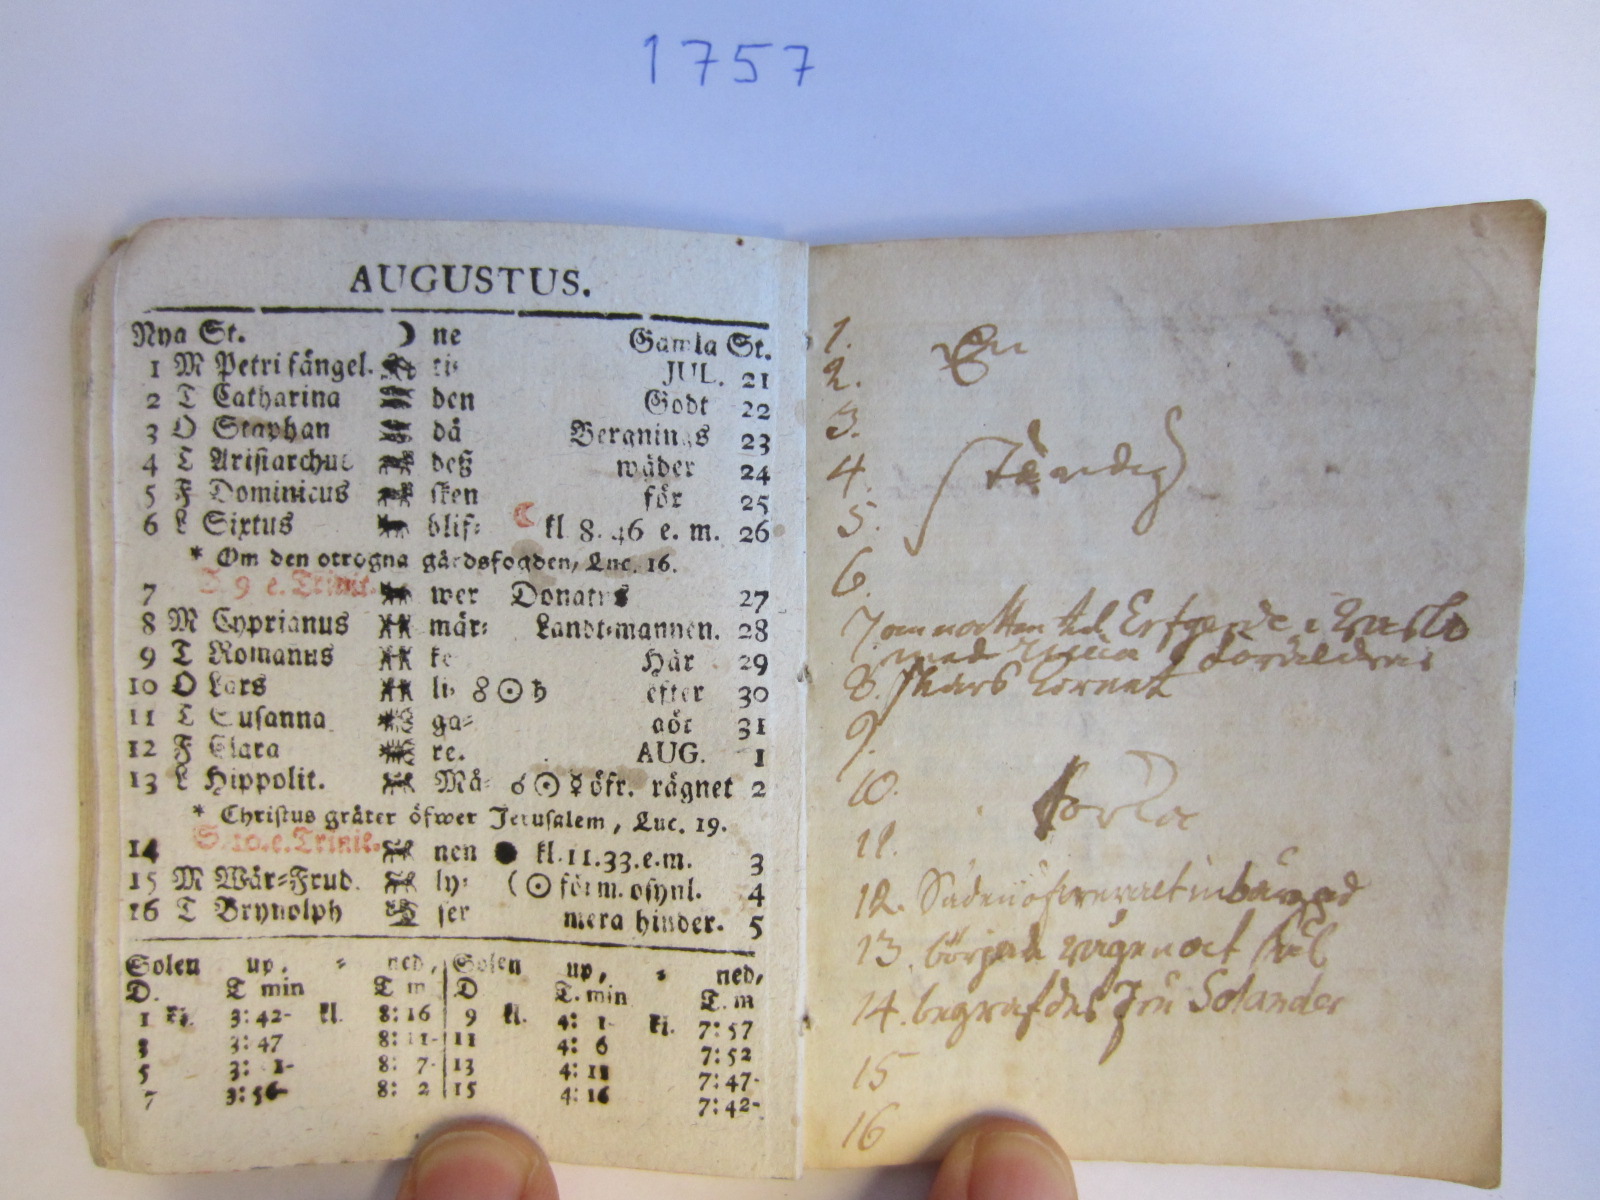 1757
AUGUSTUS.
Nya St. ☽ ne Gamla St.
1 M Petri fängel. JUL. 21
2 T Catharina den Godt 22
3 O Staphan då Bergnings 23
4 T Aristarchus deß wäder 24
5 F Dominicus sken för 25
6 L Sixtus blif: ☾ kl 8. 46 e. m. 26
* Om den otrogna gårdsfogden, Luc. 16.
7 S 9 e. Trinit. wer Donatus 27
8 M Cyprianus mär: Landt-mannen. 28
9 T Romanus ke Här 29
10 O Lars li ☍ ☉ ♄ efter 30
11 T Susanna ga= 31
12 F Clara re. AUG. 1
13 L Hippolit. Må= ☌ ☉ ☿ öfr. rägnet 2
* Christus gråter öfwer Jerusalem, Luc. 19.
14 S 10. e. Trinit. nen ● kl. 11. 33. e. m. 3
15 M Wår=Frud. ly: ( ☉ förm. osynl. 4
16 T Brynolph ser mera hinder. 5
Solen up, = ned, Solen up, = ned,
D. T min T m D T. min T. m
1 kl. 3: 42- kl. 8: 16 9 kl. 4: 1- kl. 7: 57
3 3: 47 8: 11- 11 4: 6 7: 52
5 3: 8: 7- 13 4: 11 7: 47-
7 3: 56- 8: 2 15 4: 16 7: 42-
1. En
2.
3.
4. ständig
5.
6.
7. om natten til i
med föräldrar
8. skars kornet
9.
10. torka
11.
12. Säden inbärgad
13. började
14. begrafdes Solander
15
16